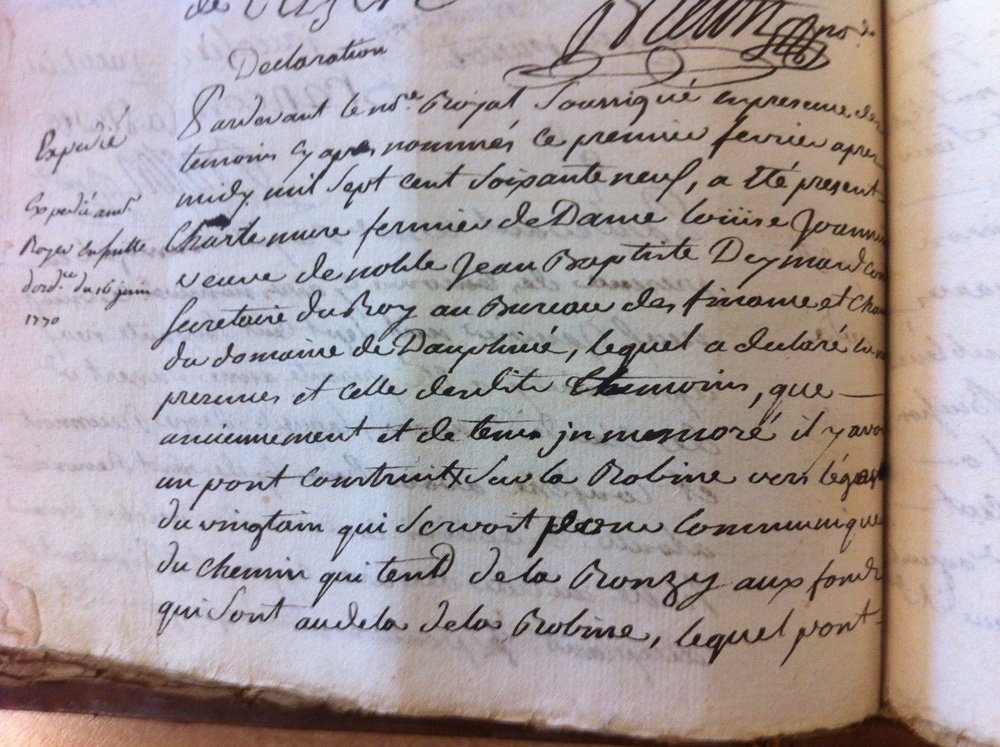 Declaration
Pardevant le no.re Royal Soussigné en presence des
temoins cy apres nommés ce premier fevrier apres
midy mil sept cent soixante neuf, a êté present
Expedié
fermier de Dame Louise
veuve de noble Jean Baptiste Deymard
Secretaire du Roy au Bureau des finance et
du domaine de Dauphiné, lequel a declaré
presence et celle desdits themoins, que
anciennement et de tems jn memoré il y avoi
un pont construit sur la Robine vers
du vingtain qui servoit pour
du chemin qui tend de la Ronzy aux fonds
qui sont audela de la Robine, lequel pont
Expedié
Royer
du 16 juin
1770